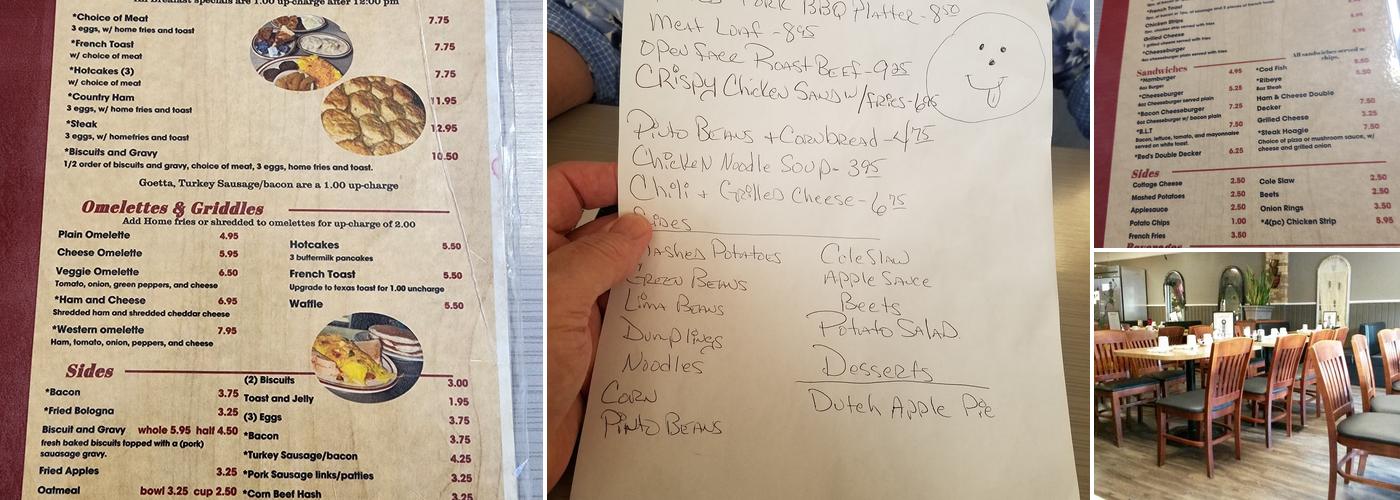 All breakfast specials are 1.00 up-charge after 12:00 pm
*Choice of Meat 7.75
3 eggs, w/ home fries and toast
*French Toast 7.75
w/ choice of meat
*Hotcakes (3) 7.75
w/ choice of meat
*Country Ham 11.95
3 eggs, w/ home fries and toast
*Steak 12.95
3 eggs, w/ homefries and toast
*Biscuits and Gravy 10.50
1/2 order of biscuits and gravy, choice of meat, 3 eggs, home fries and toast.
Goetta, Turkey Sausage/bacon are a 1.00 up-charge
Omelettes & Griddles
Add Home fries or shredded to omelettes for up-charge of 2.00
Plain Omelette 4.95
Cheese Omelette 5.95
Veggie Omelette 6.50
Tomato, onion, green peppers, and cheese
*Ham and Cheese 6.95
Shredded ham and shredded cheddar cheese
*Western omelette 7.95
Ham, tomato, onion, peppers, and cheese
Hotcakes 5.50
3 buttermilk pancakes
French Toast 5.50
Upgrade to texas toast for 1.00 uncharge
Waffle 5.50
Sides
*Bacon 3.75
*Fried Bologna 3.25
Biscuit and Gravy whole 5.95 half 4.50
fresh baked biscuits topped with a (pork)
sauasage gravy.
Fried Apples 3.25
Oatmeal bowl 3.25 cup 2.50
(2) Biscuits 3.00
Toast and Jelly 1.95
(3) Eggs 3.75
*Bacon 3.75
*Turkey Sausage/bacon 4.25
*Pork Sausage links/patties 3.25
*Corn Beef Hash 3.25
Pork BBQ Platter - 850
Meat Loaf - 895
Open Face Roast Beef - 925
Crispy Chicken Sand w/fries - 695
Pinto Beans + Cornbread - 475
Chicken Noodle Soup - 395
Chili + Grilled Cheese - 675
Sides
Mashed Potatoes
Green Beans
Lima Beans
Dumplings
Noodles
Corn
Pinto Beans
Cole Slaw
Apple Sauce
Beets
Potato Salad
Desserts
Dutch Apple Pie
*French Toast
Chicken Strips
Grilled Cheese
1 grilled cheese served with fries
*Cheeseburger
All sandwiches served w/
chips.
Sandwiches
*Hamburger 4.95
4oz Burger
*Cheeseburger 5.25
4oz Cheeseburger served plain
*Bacon Cheeseburger 7.25
4oz Cheeseburger w/ bacon served plain
*B.L.T 7.50
Bacon, lettuce, tomato, and mayonnaise
served on white toast.
*Red's Double Decker 6.25
*Cod Fish 8.50
*Ribeye
8oz Steak
Ham & Cheese Double
Decker 7.50
Grilled Cheese 3.25
*Steak Hoagie 7.50
Choice of pizza or mushroom sauce, w/
cheese and grilled onion.
Sides
Cottage Cheese 2.50
Mashed Potatoes 2.50
Applesauce 2.50
Potato Chips 1.00
French Fries 3.50
Cole Slaw 2.50
Beets 2.50
Onion Rings 3.50
*4(pc) Chicken Strip 5.95
Beverages